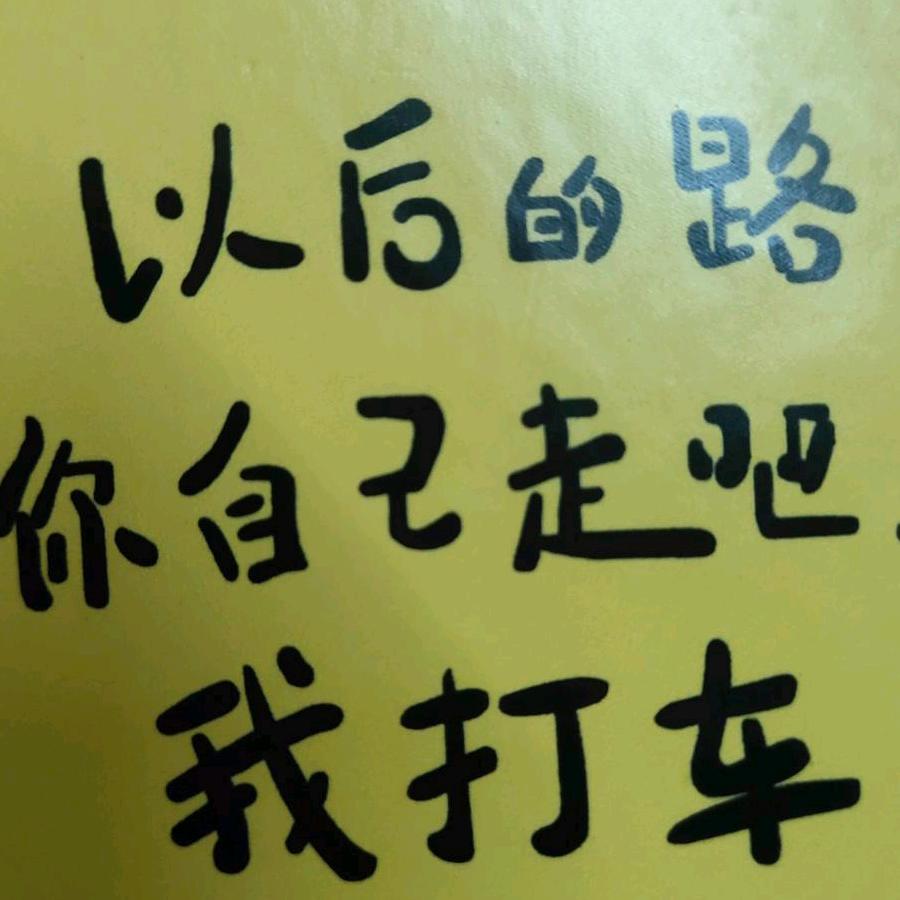 以后的路
你自己走吧.
我打车